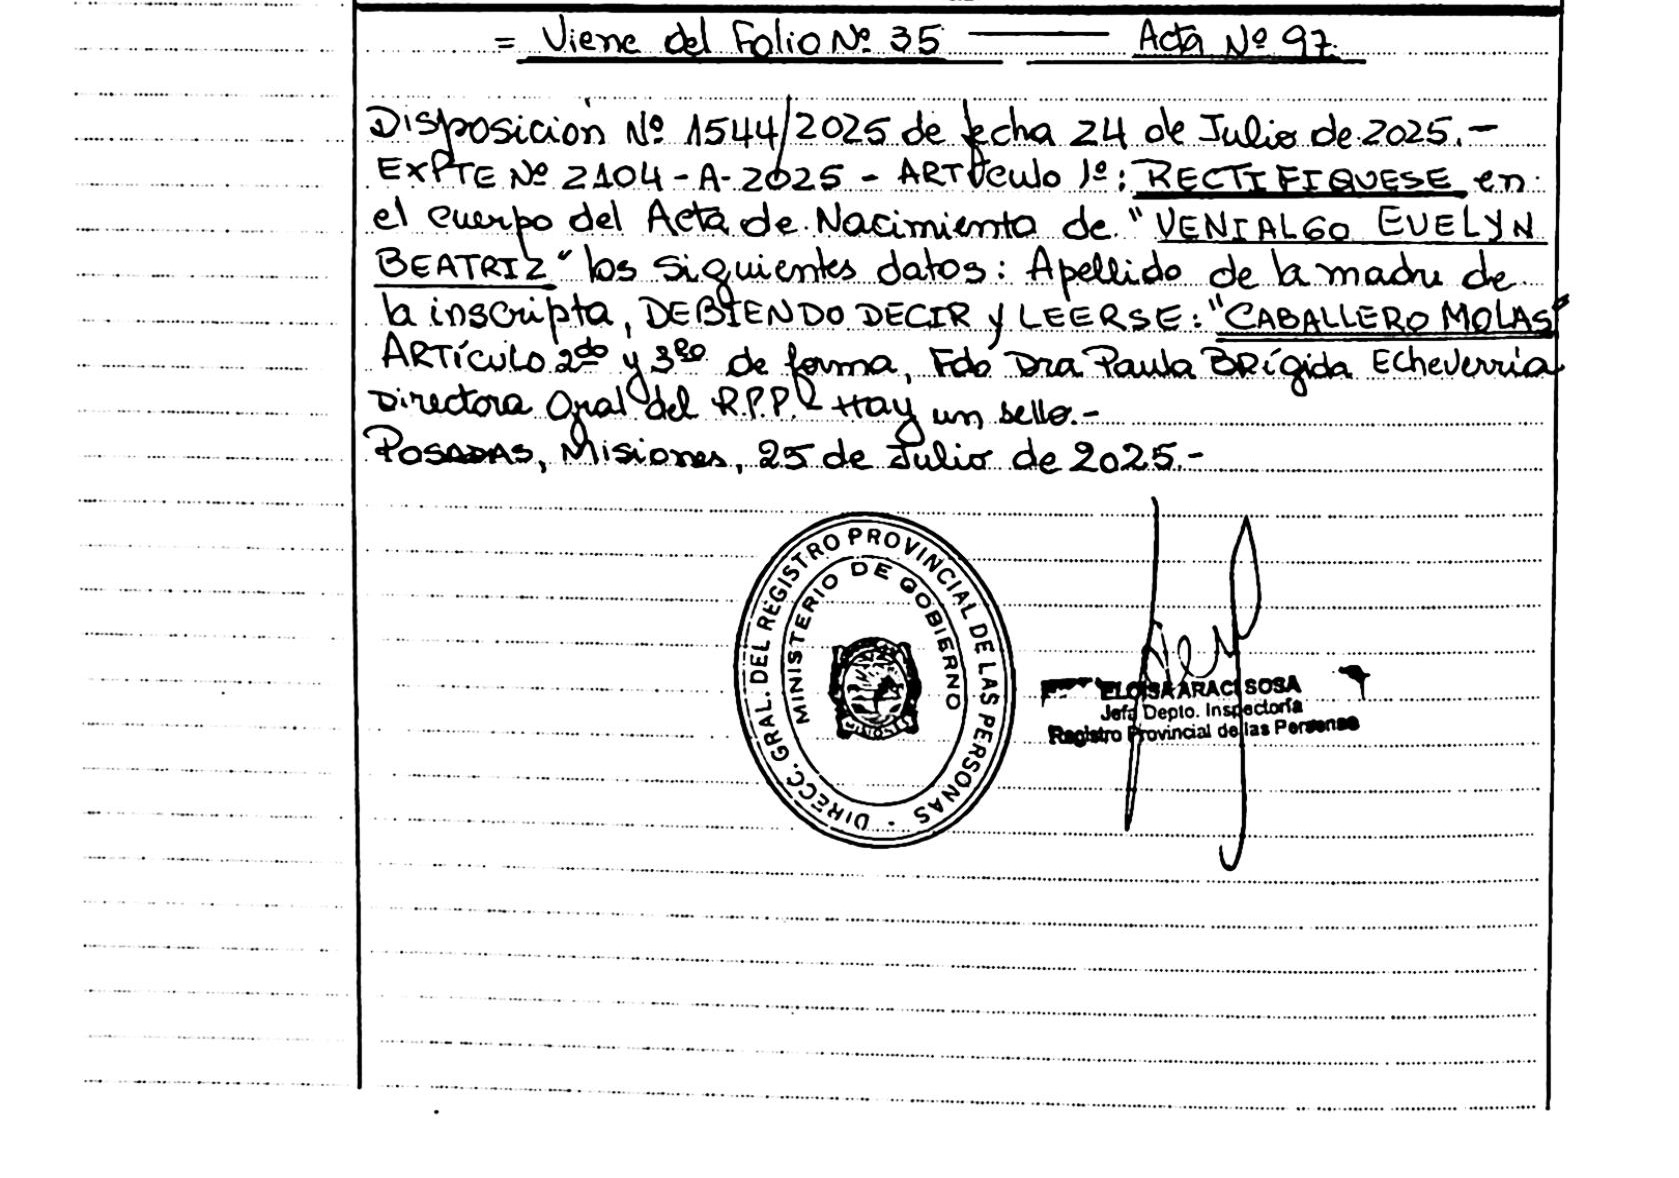 = Viene del Folio Nº 35 — Acta Nº 97.
Disposición Nº 1544/2025 de fecha 24 de Julio de 2025.-
EXPTE Nº 2104-A-2025 - ARTÍCULO 1º: RECTIFIQUESE en
el cuerpo del Acta de Nacimiento de "VENIALGO EVELYN
BEATRIZ" los siguientes datos: Apellido de la madre de
la inscripta, DEBIENDO DECIR y LEERSE: "CABALLERO MOLAS"
ARTÍCULO 2do y 3ro de forma, Fdo Dra Paula BRígida Echeverría
Directora Gral del R.P.P.- Hay un sello.-
POSADAS, Misiones, 25 de Julio de 2025.-
DIRECC. GRAL. DEL REGISTRO PROVINCIAL DE LAS PERSONAS -
MINISTERIO DE GOBIERNO
ELOISA ARACI SOSA
Jefa Depto. Inspectoría
Registro Provincial de las Personas